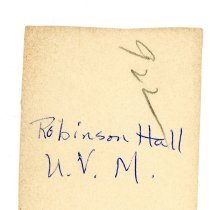 Robinson Hall
U.V.M.